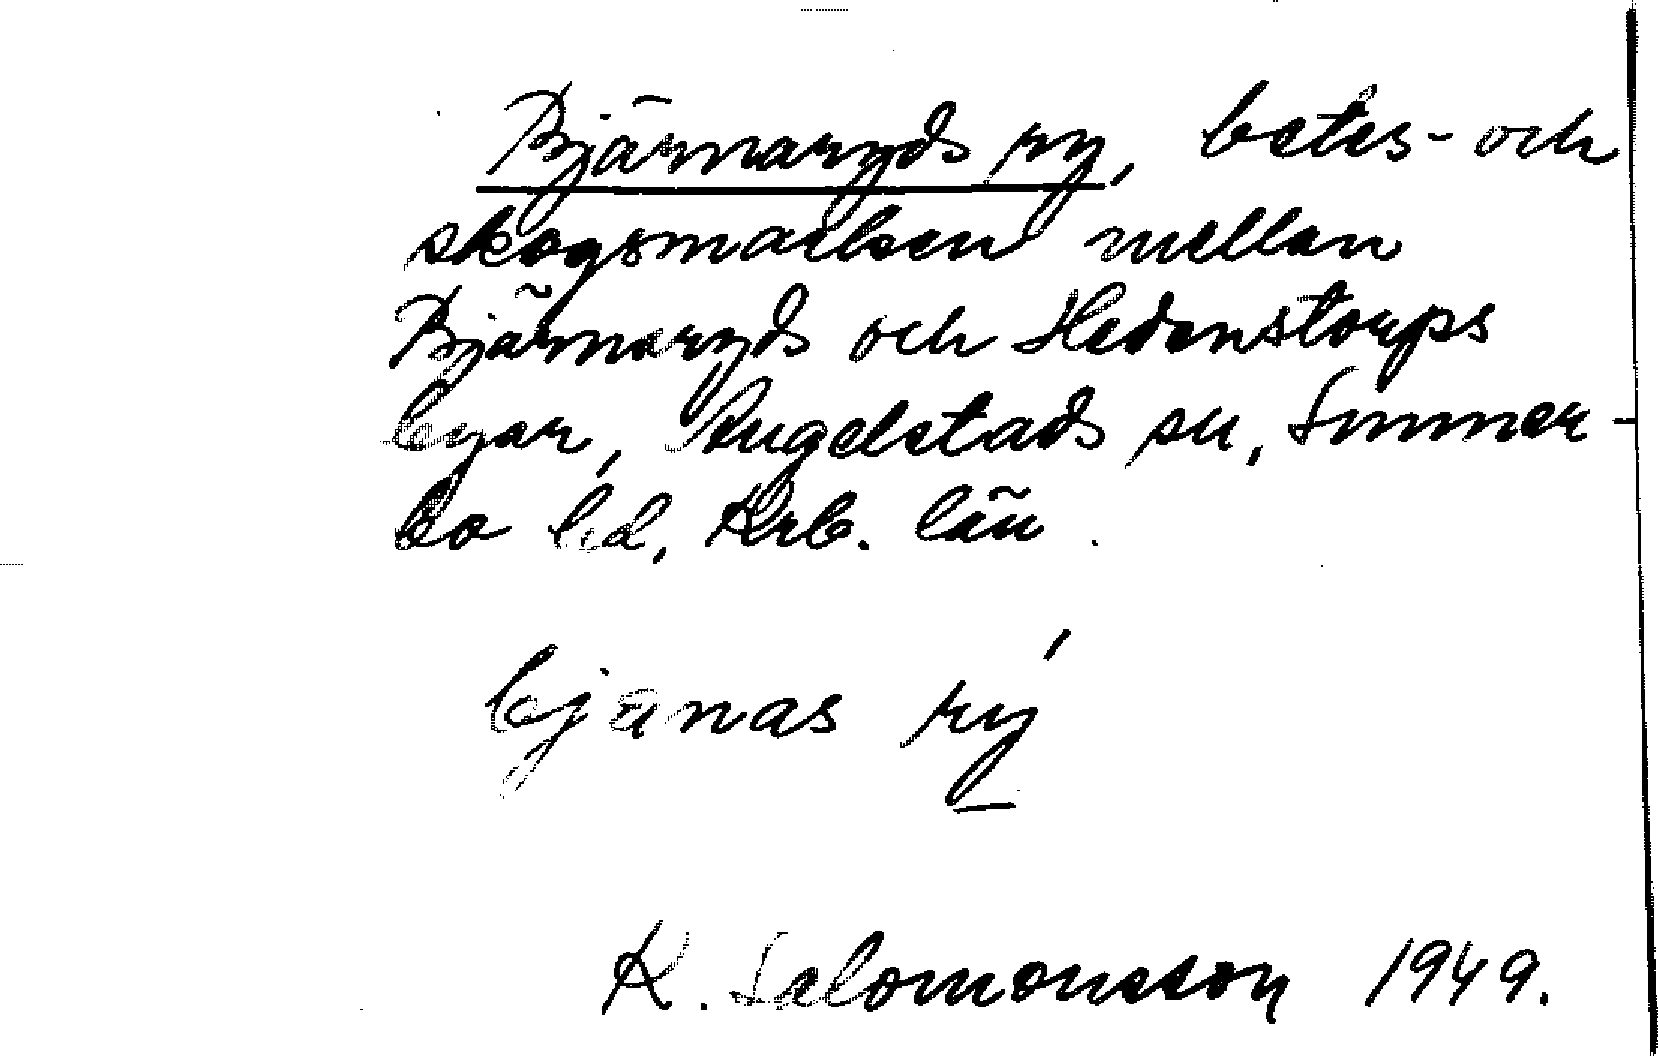 Bjärnaryds ry, betes- och
skogsmarken mellan
Bjärnaryds och Hedenstorps
byar, Angelstads sn, Sunner-
bo hd, Krb. län.
bjänas rý
K. Salomonsson 1949.